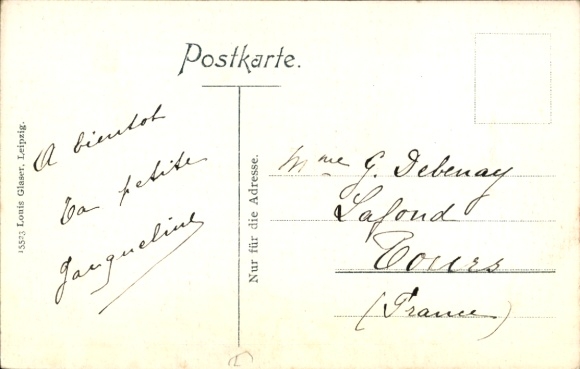 Postkarte.
A bientot
Ta petite
Jacqueline
Mme G. Debenay
Lafond
Tours
(France)
Nur für die Adresse.
15523 Louis Glaser, Leipzig.